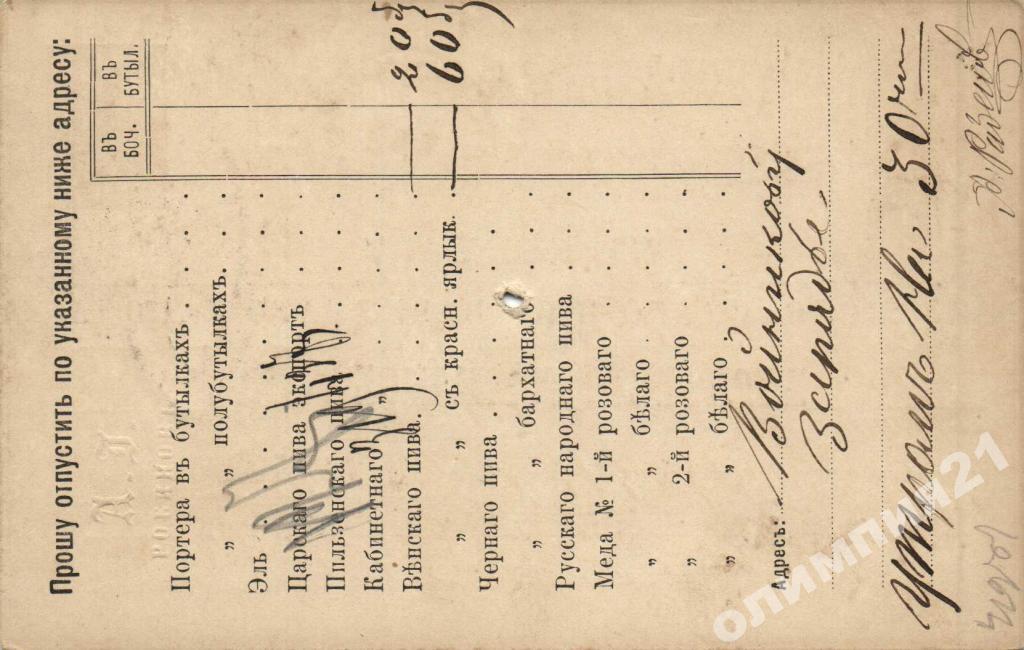 Прошу отпустить по указанному ниже адресу:
Въ боч. Въ бутыл.
Портера въ бутылкахъ
„ „ полубутылкахъ.
Эль
Царскаго пива экспортъ
Пильзенскаго пива
Кабинетнаго „
Вѣнскаго пива. — 20б
„ „ съ красн. ярлык. — 60б
Чернаго пива
„ „ бархатнаго
Русскаго народнаго пива
Меда № 1-й розоваго
„ „ бѣлаго
„ 2-й розоваго
„ „ бѣлаго
Адресъ:
Утромъ 30
ОЛИМПИЯ21